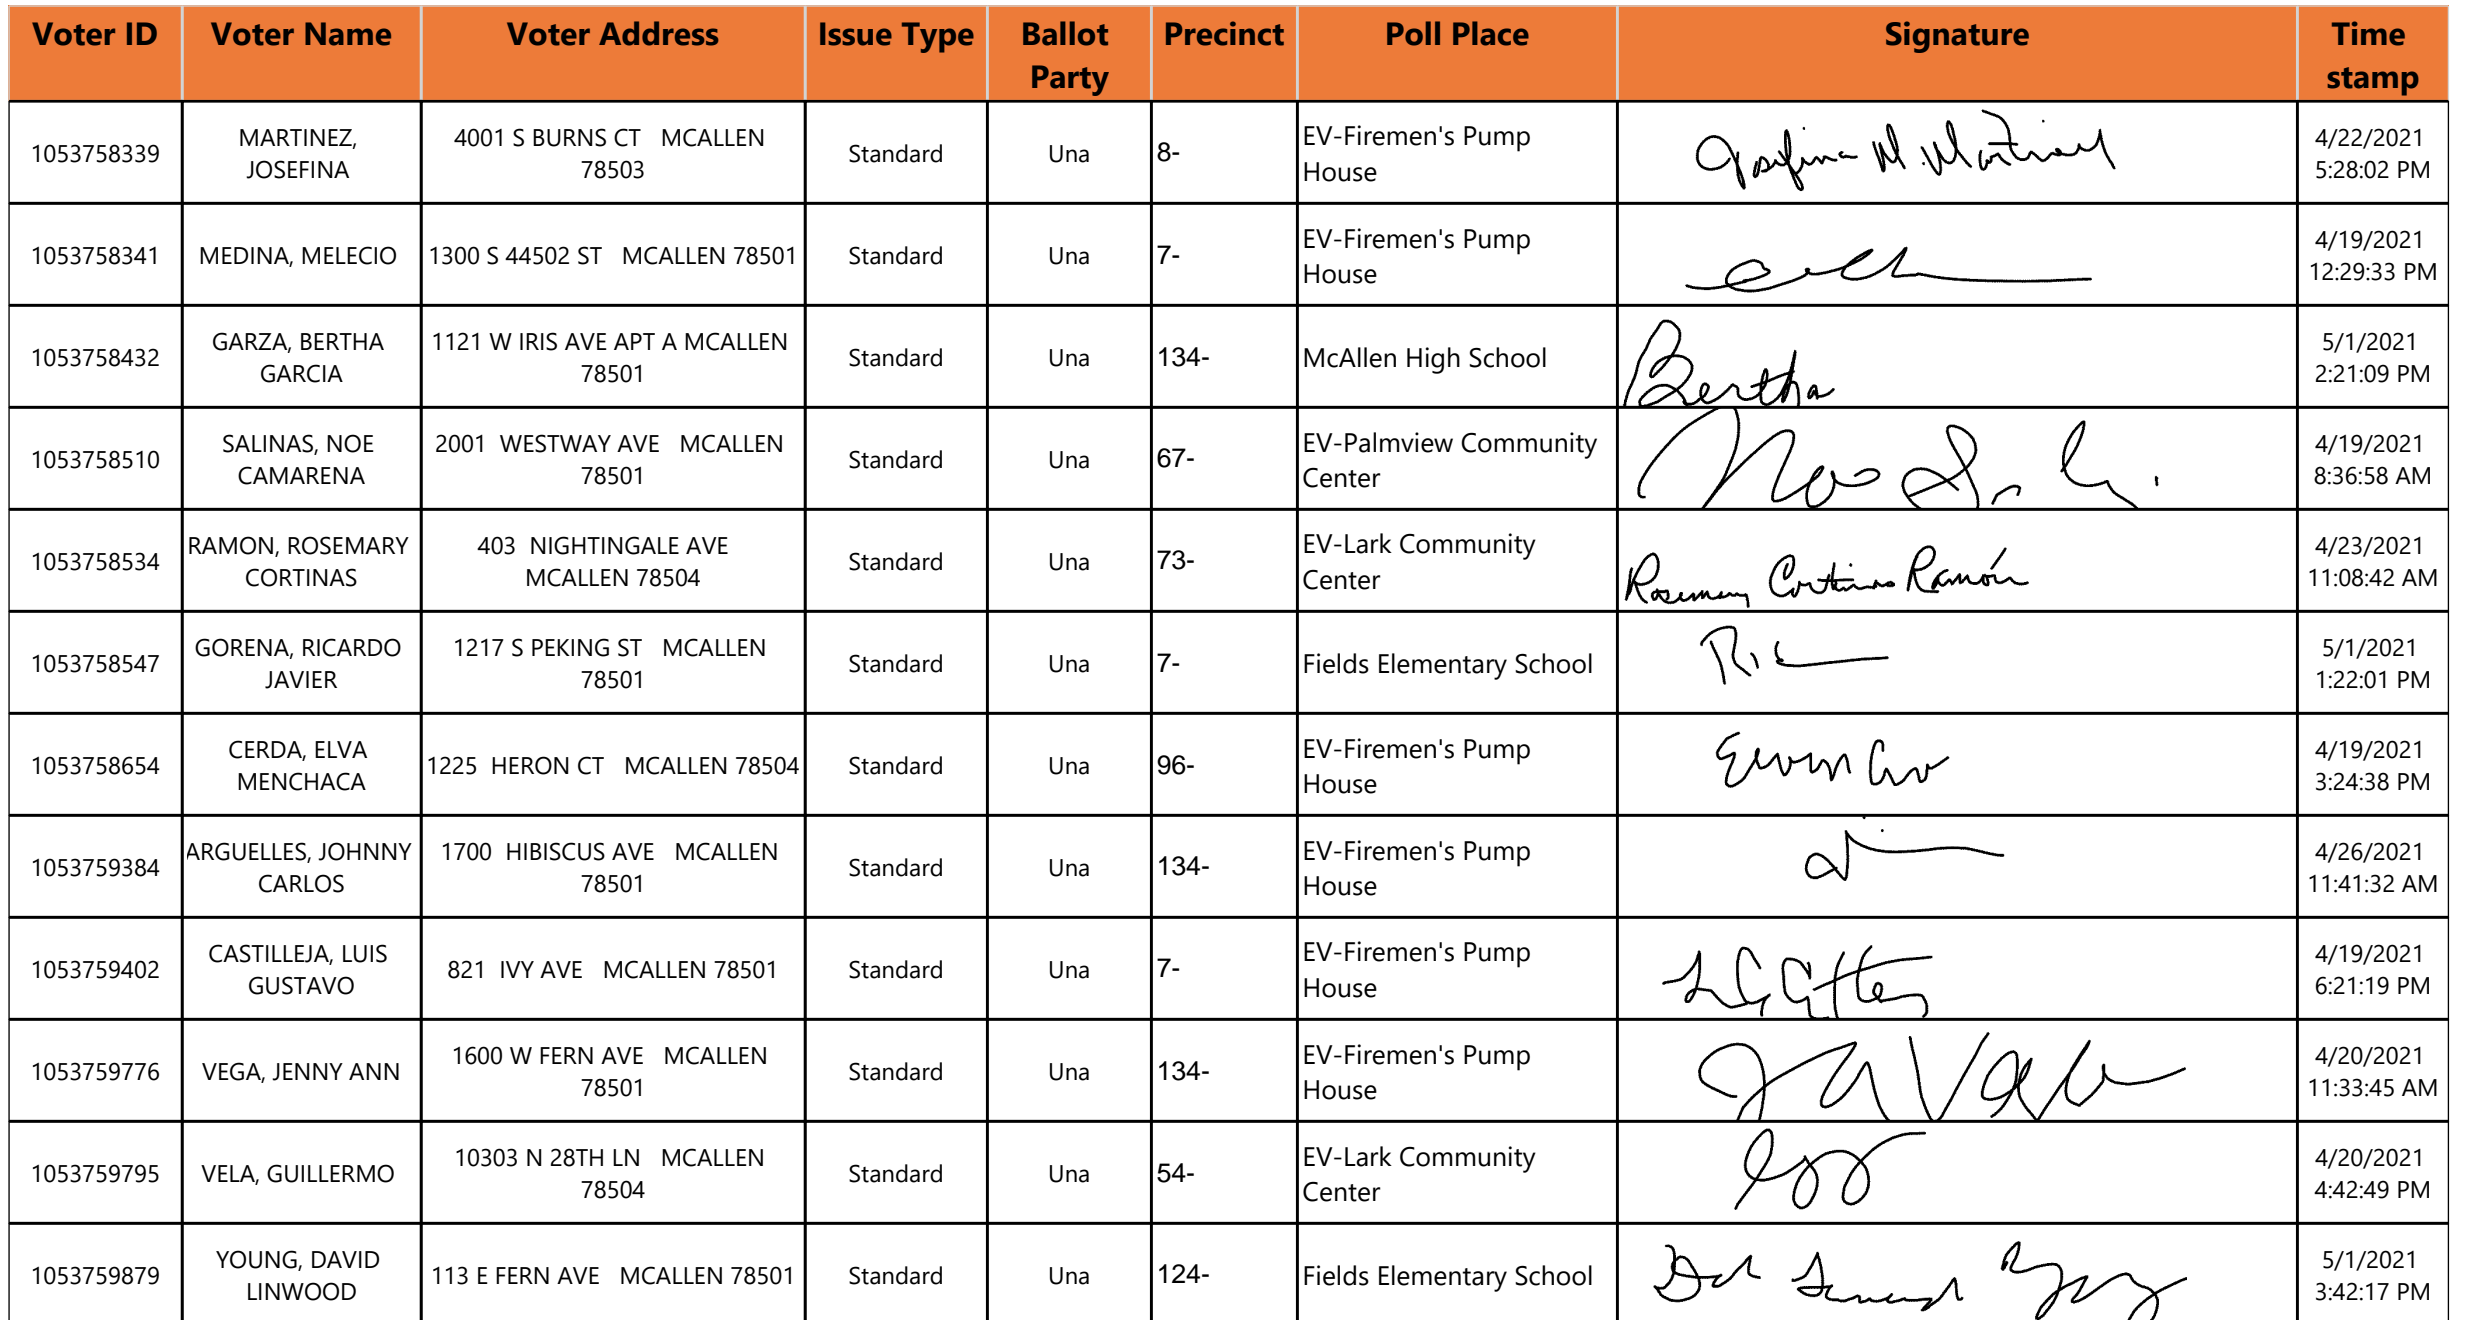 Voter ID Voter Name Voter Address Issue Type Ballot Party Precinct Poll Place Signature Time stamp
1053758339 MARTINEZ, JOSEFINA 4001 S BURNS CT MCALLEN 78503 Standard Una 8- EV-Firemen's Pump House Josefina M. Martinez 4/22/2021 5:28:02 PM
1053758341 MEDINA, MELECIO 1300 S 44502 ST MCALLEN 78501 Standard Una 7- EV-Firemen's Pump House 4/19/2021 12:29:33 PM
1053758432 GARZA, BERTHA GARCIA 1121 W IRIS AVE APT A MCALLEN 78501 Standard Una 134- McAllen High School Bertha 5/1/2021 2:21:09 PM
1053758510 SALINAS, NOE CAMARENA 2001 WESTWAY AVE MCALLEN 78501 Standard Una 67- EV-Palmview Community Center 4/19/2021 8:36:58 AM
1053758534 RAMON, ROSEMARY CORTINAS 403 NIGHTINGALE AVE MCALLEN 78504 Standard Una 73- EV-Lark Community Center Rosemary Cortinas Ramón 4/23/2021 11:08:42 AM
1053758547 GORENA, RICARDO JAVIER 1217 S PEKING ST MCALLEN 78501 Standard Una 7- Fields Elementary School 5/1/2021 1:22:01 PM
1053758654 CERDA, ELVA MENCHACA 1225 HERON CT MCALLEN 78504 Standard Una 96- EV-Firemen's Pump House 4/19/2021 3:24:38 PM
1053759384 ARGUELLES, JOHNNY CARLOS 1700 HIBISCUS AVE MCALLEN 78501 Standard Una 134- EV-Firemen's Pump House 4/26/2021 11:41:32 AM
1053759402 CASTILLEJA, LUIS GUSTAVO 821 IVY AVE MCALLEN 78501 Standard Una 7- EV-Firemen's Pump House 4/19/2021 6:21:19 PM
1053759776 VEGA, JENNY ANN 1600 W FERN AVE MCALLEN 78501 Standard Una 134- EV-Firemen's Pump House 4/20/2021 11:33:45 AM
1053759795 VELA, GUILLERMO 10303 N 28TH LN MCALLEN 78504 Standard Una 54- EV-Lark Community Center 4/20/2021 4:42:49 PM
1053759879 YOUNG, DAVID LINWOOD 113 E FERN AVE MCALLEN 78501 Standard Una 124- Fields Elementary School 5/1/2021 3:42:17 PM